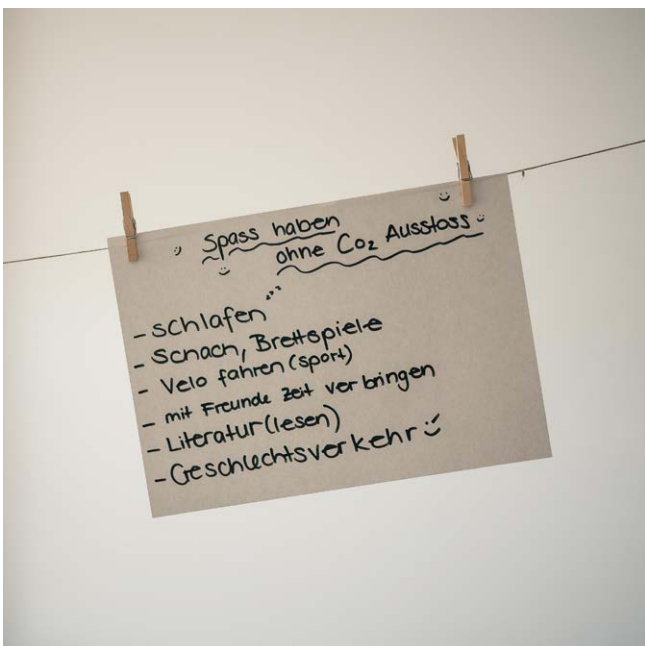 Spass haben
ohne Co₂ Ausstoss
- schlafen
- Schach, Brettspiele
- Velo fahren (sport)
- mit Freunde zeit verbringen
- Literatur (lesen)
- Geschlechtsverkehr